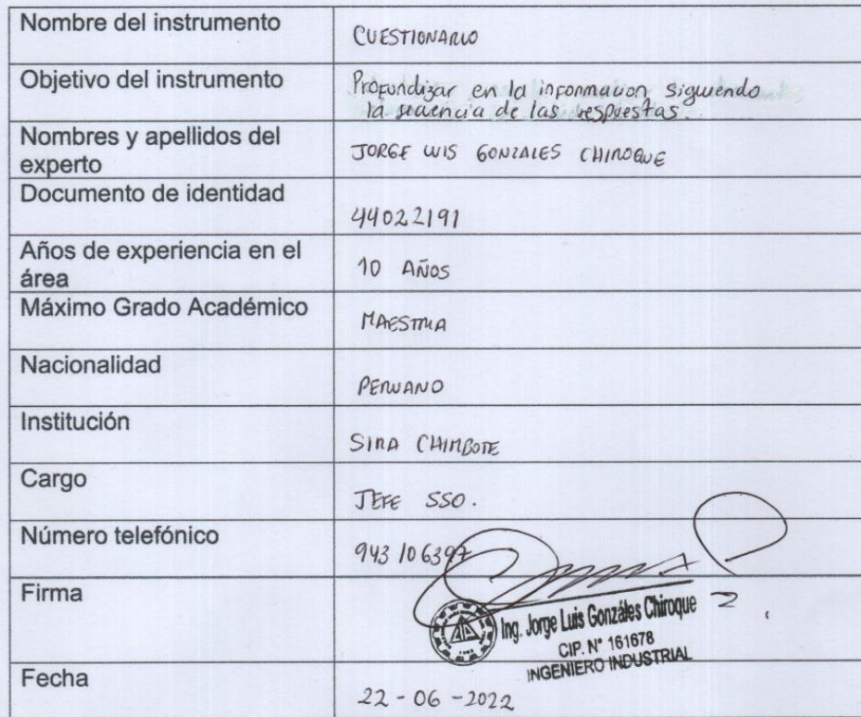 Nombre del instrumento
CUESTIONARIO
Objetivo del instrumento
Profundizar en la informacion siguiendo
la secuencia de las respuestas.
Nombres y apellidos del
experto
JORGE LUIS GONZALES CHIROQUE
Documento de identidad
44022191
Años de experiencia en el
área
10 AÑOS
Máximo Grado Académico
MAESTRIA
Nacionalidad
PERUANO
Institución
SIMA CHIMBOTE
Cargo
JEFE SSO.
Número telefónico
943 106397
Firma
Ing. Jorge Luis Gonzáles Chiroque
CIP. N° 161678
INGENIERO INDUSTRIAL
Fecha
22 - 06 - 2022